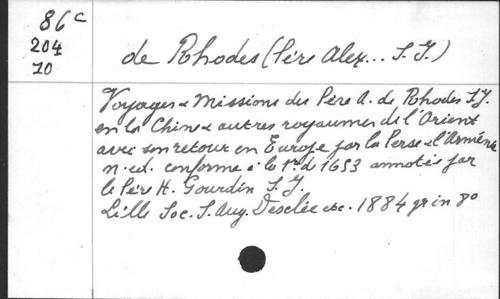 86c
204
10
de Rhodes (Père Alex... S. J.)
Voyages & Missions du Père A. de Rhodes S.J.
en la Chine & autres royaumes de l'Orient
avec son retour en Europe par la Perse & l'Arménie
n. ed. conforme à la 1re de 1653 annotée par
le Père H. Gourdin S. J.
Lille Soc. S. Aug. Desclée etc. 1884 gr in 8o